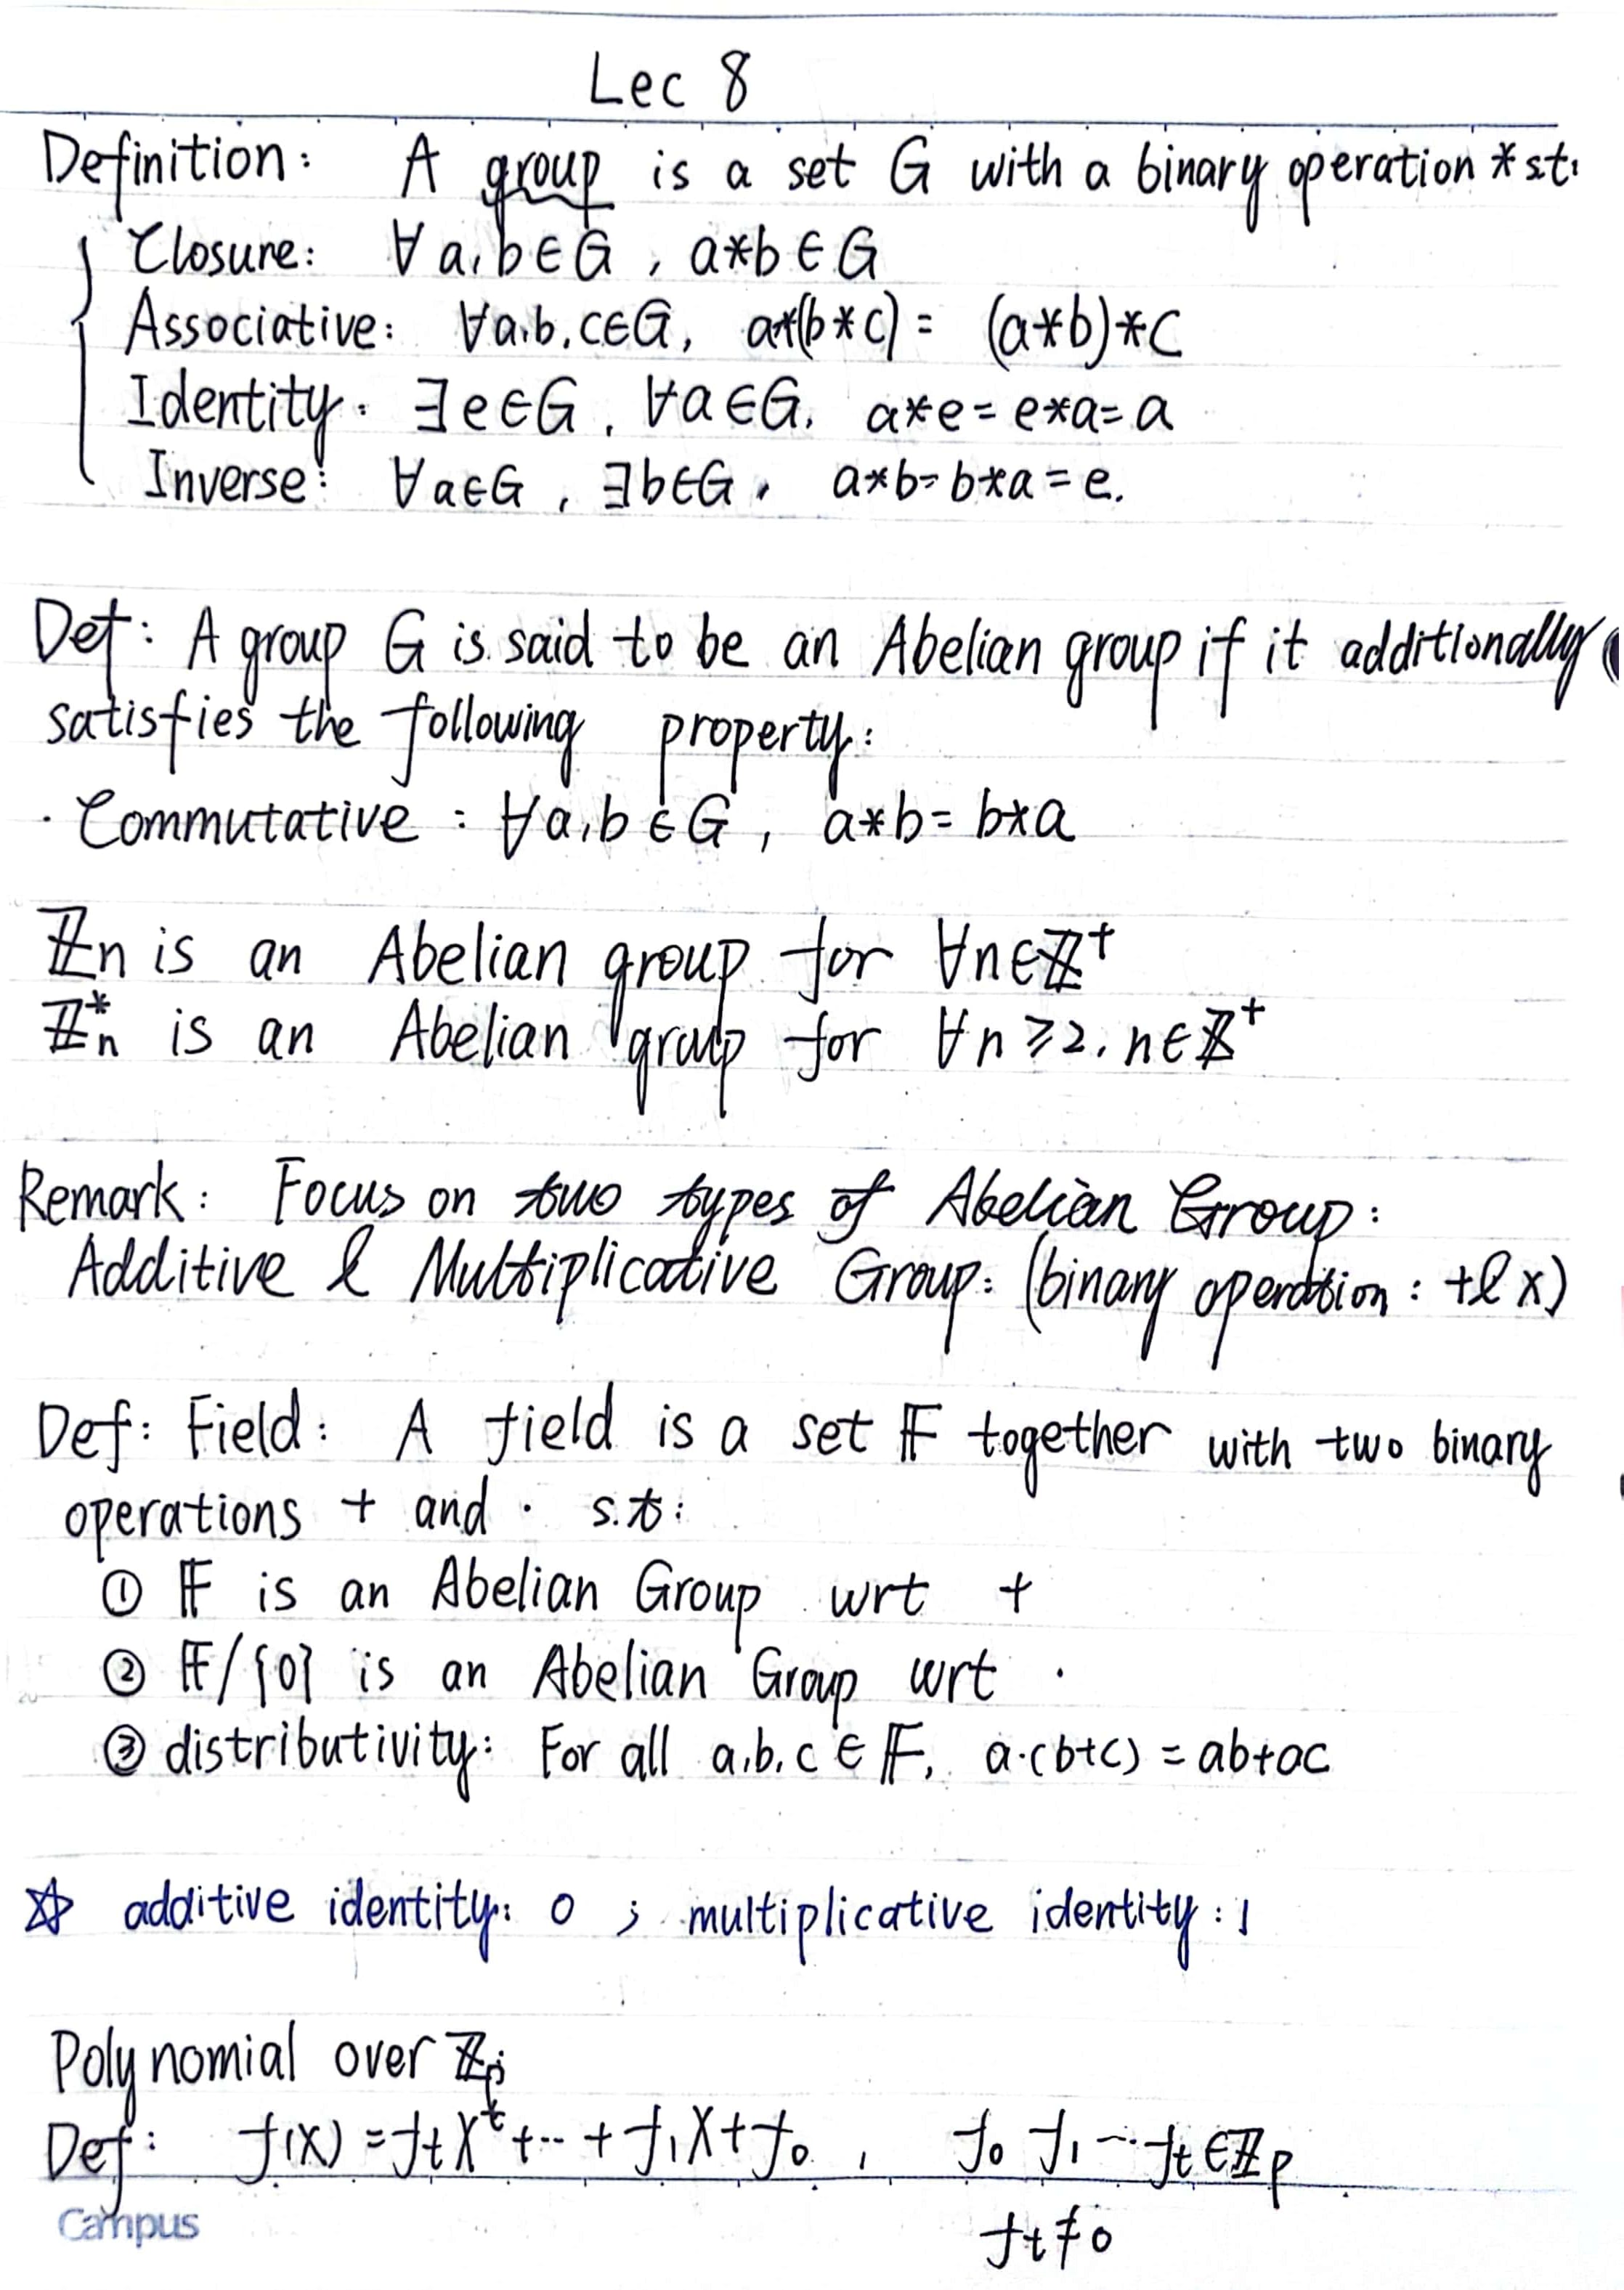 Lec 8
Definition: A group is a set G with a binary operation * s.t.
Closure: ∀ a, b ∈ G, a*b ∈ G
Associative: ∀ a, b, c ∈ G, a*(b*c) = (a*b)*c
Identity: ∃ e ∈ G, ∀ a ∈ G, a*e = e*a = a
Inverse: ∀ a ∈ G, ∃ b ∈ G, a*b = b*a = e.
Def: A group G is said to be an Abelian group if it additionally
satisfies the following property:
· Commutative: ∀ a, b ∈ G, a*b = b*a
ℤn is an Abelian group for ∀n∈ℤ⁺
ℤ*n is an Abelian group for ∀n ≥ 2, n∈ℤ⁺
Remark: Focus on two types of Abelian Group:
Additive & Multiplicative Group: (binary operation: + & ×)
Def: Field: A field is a set 𝔽 together with two binary
operations + and · s.t:
① 𝔽 is an Abelian Group wrt +
② 𝔽/{0} is an Abelian Group wrt ·
③ distributivity: For all a, b, c ∈ 𝔽, a·(b+c) = ab+ac
☆ additive identity: 0 ; multiplicative identity: 1
Polynomial over ℤp:
Def: f(x) = f_t x^t + ··· + f₁x + f₀, f₀ f₁ ··· f_t ∈ ℤp
f_t ≠ 0
Campus